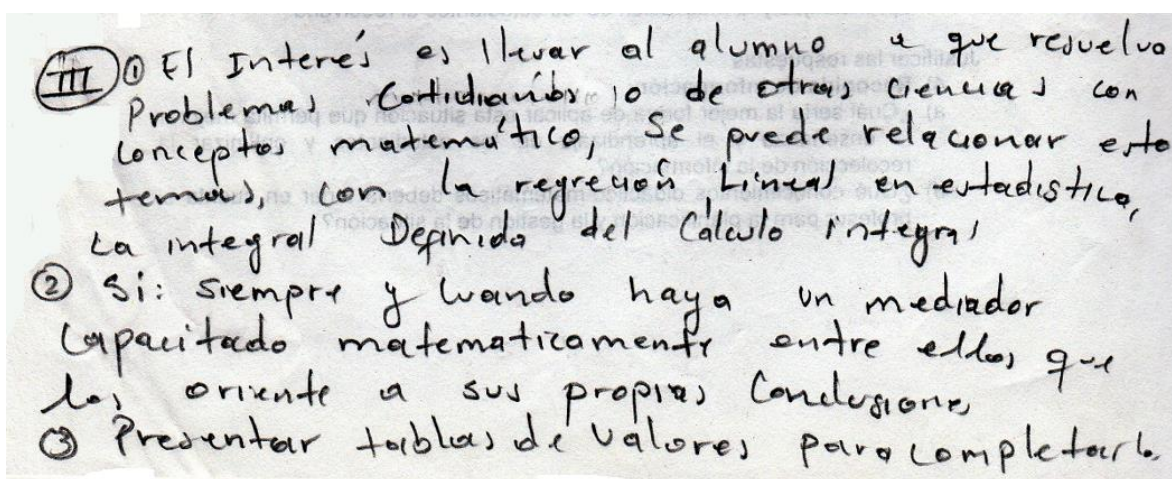 III ① El Interés es llevar al alumno a que resuelva
Problemas Cottidianos, o de otras ciencias con
conceptos matemático, Se puede relacionar esto
temas, con la regresión Lineal en estadística,
La integral Definida del Cálculo integral
② Si: siempre y cuando haya un mediador
Capacitado matematicamente entre ellos que
los oriente a sus propias Conclusiones
③ Presentar tablas de valores para completarla.